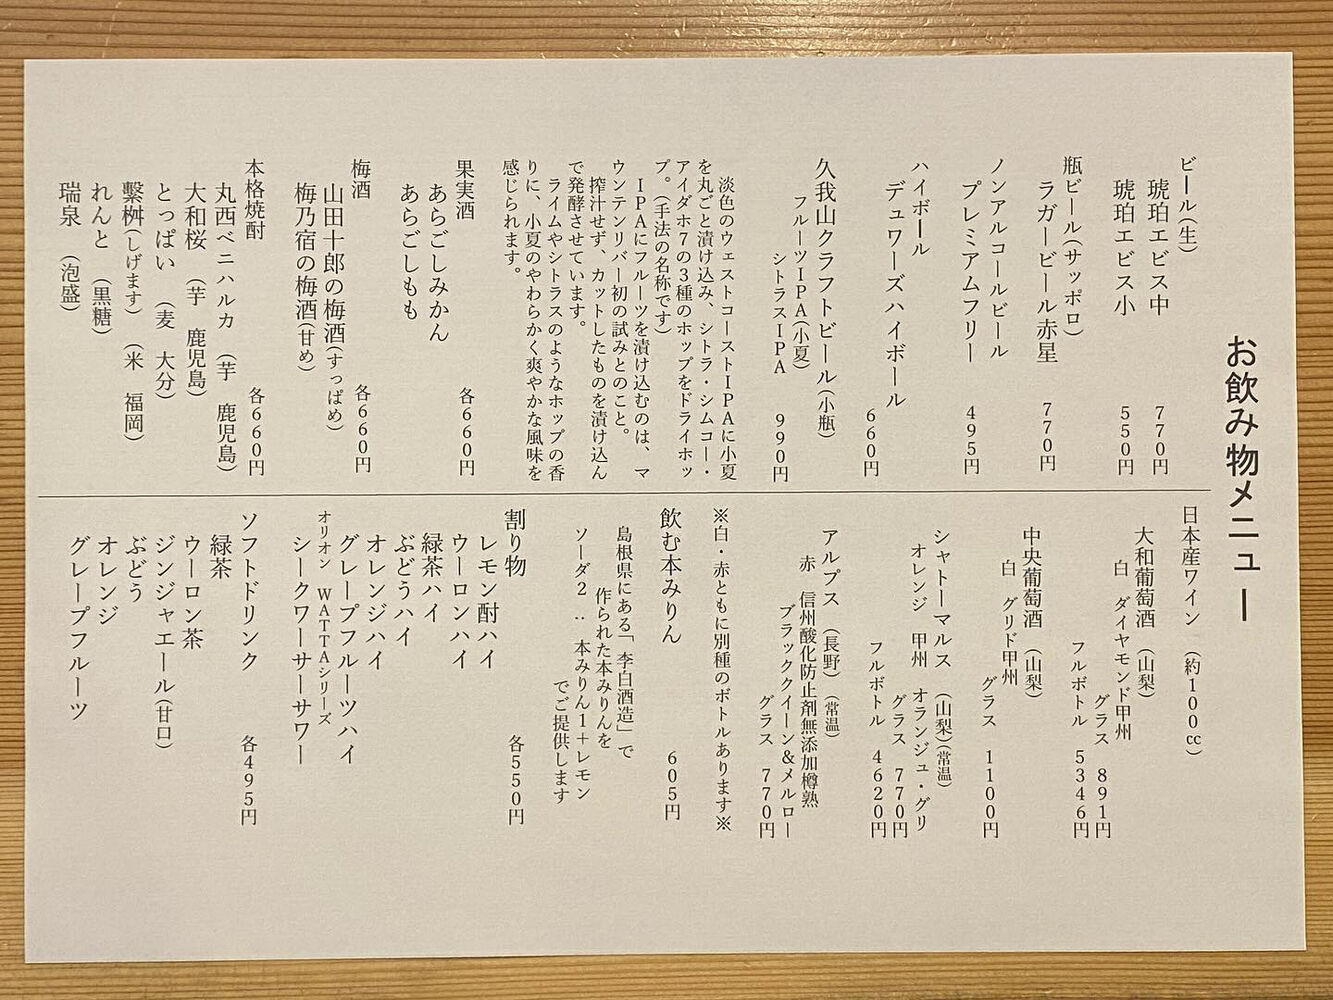 お飲み物メニュー
ビール(生)
琥珀エビス中 770円
琥珀エビス小 550円
瓶ビール(サッポロ)
ラガービール赤星 770円
ノンアルコールビール
プレミアムフリー 495円
ハイボール
デュワーズハイボール
660円
久我山クラフトビール(小瓶)
フルーツIPA(小夏)
シトラスIPA 990円
淡色のウェストコーストIPAに小夏
を丸ごと漬け込み、シトラ・シムコー・
アイダホ7の3種のホップをドライホッ
プ。(手法の名称です)
IPAにフルーツを漬け込むのは、マ
ウンテンリバー初の試みとのこと。
搾汁せず、カットしたものを漬け込ん
で発酵させています。
ライムやシトラスのようなホップの香
りに、小夏のやわらかく爽やかな風味を
感じられます。
果実酒 各660円
あらごしみかん
あらごしもも
梅酒 各660円
山田十郎の梅酒(すっぱめ)
梅乃宿の梅酒(甘め)
本格焼酎 各660円
丸西ベニハルカ (芋 鹿児島)
大和桜 (芋 鹿児島)
とっぱい (麦 大分)
繫桝(しげます) (米 福岡)
れんと (黒糖)
瑞泉 (泡盛)
日本産ワイン (約100cc)
大和葡萄酒 (山梨)
白 ダイヤモンド甲州
グラス 891円
フルボトル 5346円
中央葡萄酒 (山梨)
白 グリド甲州
グラス 1100円
シャトーマルス (山梨)(常温)
オレンジ 甲州 オランジュ・グリ
グラス 770円
フルボトル 4620円
アルプス (長野) (常温)
赤 信州酸化防止剤無添加樽熟
ブラッククイーン&メルロー
グラス 770円
※白・赤ともに別種のボトルあります※
飲む本みりん 605円
島根県にある「李白酒造」で
作られた本みりんを
ソーダ2：本みりん1＋レモン
でご提供します
割り物 各550円
レモン酎ハイ
ウーロンハイ
緑茶ハイ
ぶどうハイ
オレンジハイ
グレープフルーツハイ
オリオン WATTAシリーズ
シークワーサーサワー
ソフトドリンク 各495円
緑茶
ウーロン茶
ジンジャエール(甘口)
ぶどう
オレンジ
グレープフルーツ